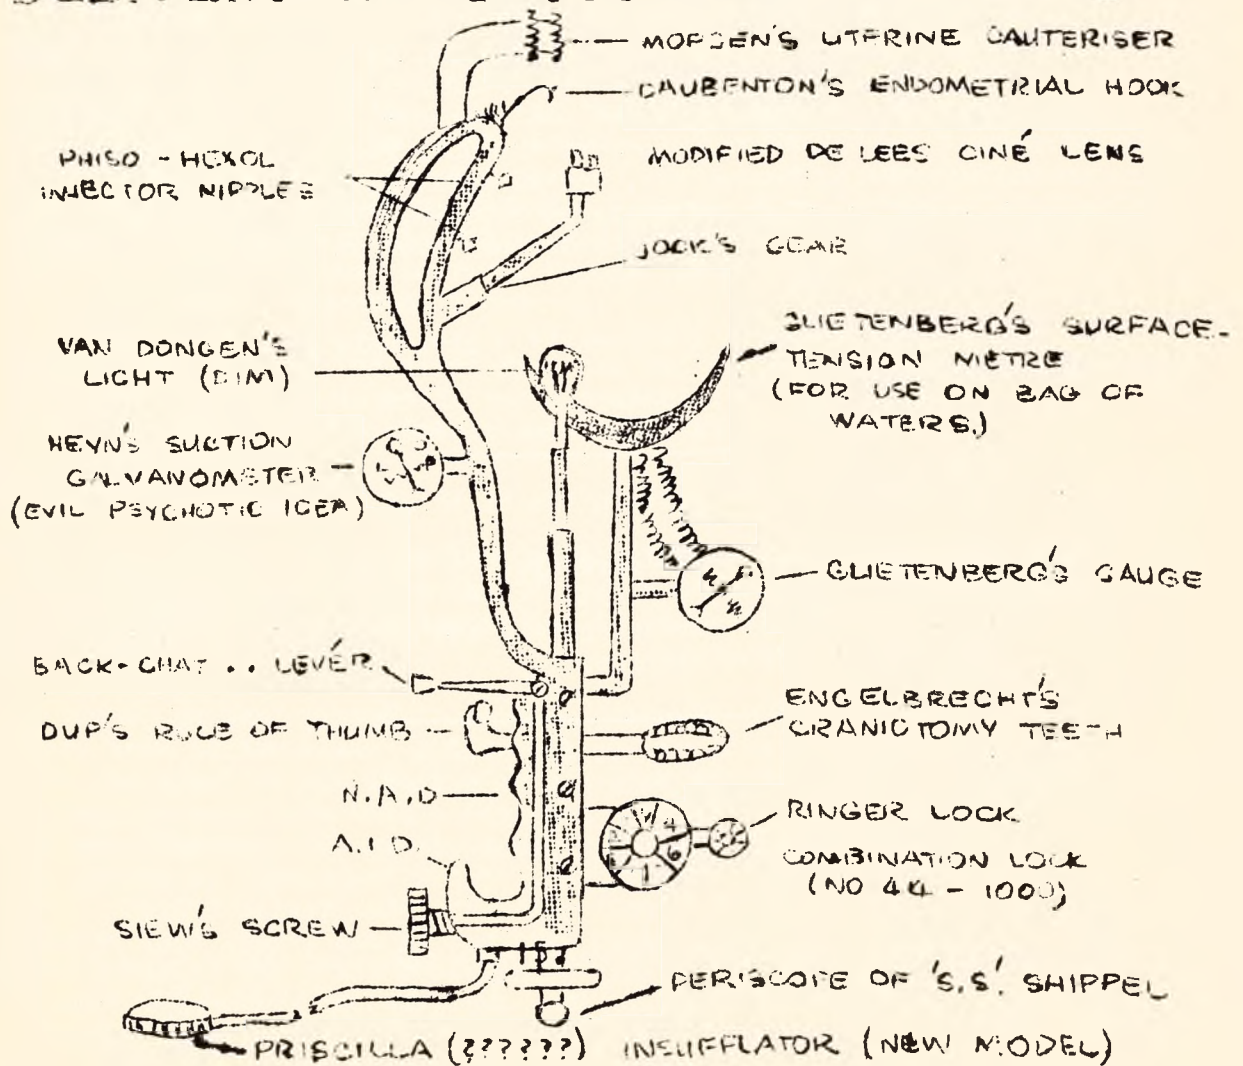 MOFSEN'S UTERINE CAUTERISER
DAUBENTON'S ENDOMETRIAL HOOK
PHISO-HEXOL
INJECTOR NIPPLES
MODIFIED DE LEES CINÉ LENS
JOCK'S GEAR
VAN DONGEN'S
LIGHT (DIM)
GLIETENBERG'S SURFACE-
TENSION METRE
(FOR USE ON BAG OF
WATERS.)
HEYN'S SUCTION
GALVANOMETER
(EVIL PSYCHOTIC IDEA)
GLIETENBERG'S GAUGE
BACK-CHAT .. LEVÉR
DUP'S RULE OF THUMB
ENGELBRECHT'S
CRANIOTOMY TEETH
N.A.D
A.I.D.
RINGER LOCK
COMBINATION LOCK
(NO 44 - 1000)
SIEW'S SCREW
PERISCOPE OF 'S.S'. SHIPPEL
PRISCILLA (??????) INSUFFLATOR (NEW MODEL)